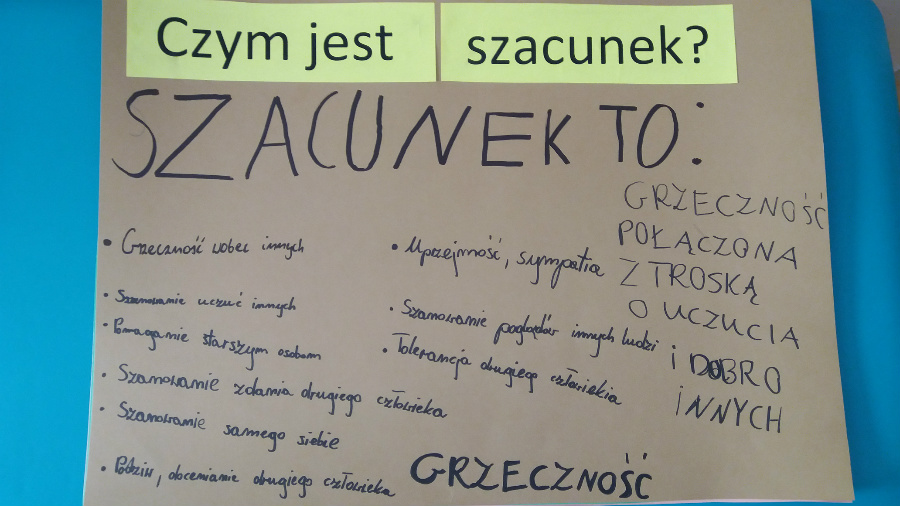 Czym jest szacunek?
SZACUNEK TO:
GRZECZNOŚĆ
POŁĄCZONA
Z TROSKĄ
O UCZUCIA
i DOBRO
iNNYCH
• Grzeczność wobec innych
• Szanowanie uczuć innych
• Pomaganie starszym osobom
• Szanowanie zdania drugiego człowieka
• Szanowanie samego siebie
• Podziw, docenianie drugiego człowieka
• Uprzejmość, sympatia
• Szanowanie poglądów innych ludzi
• Tolerancja drugiego człowiekia
GRZECZNOŚĆ